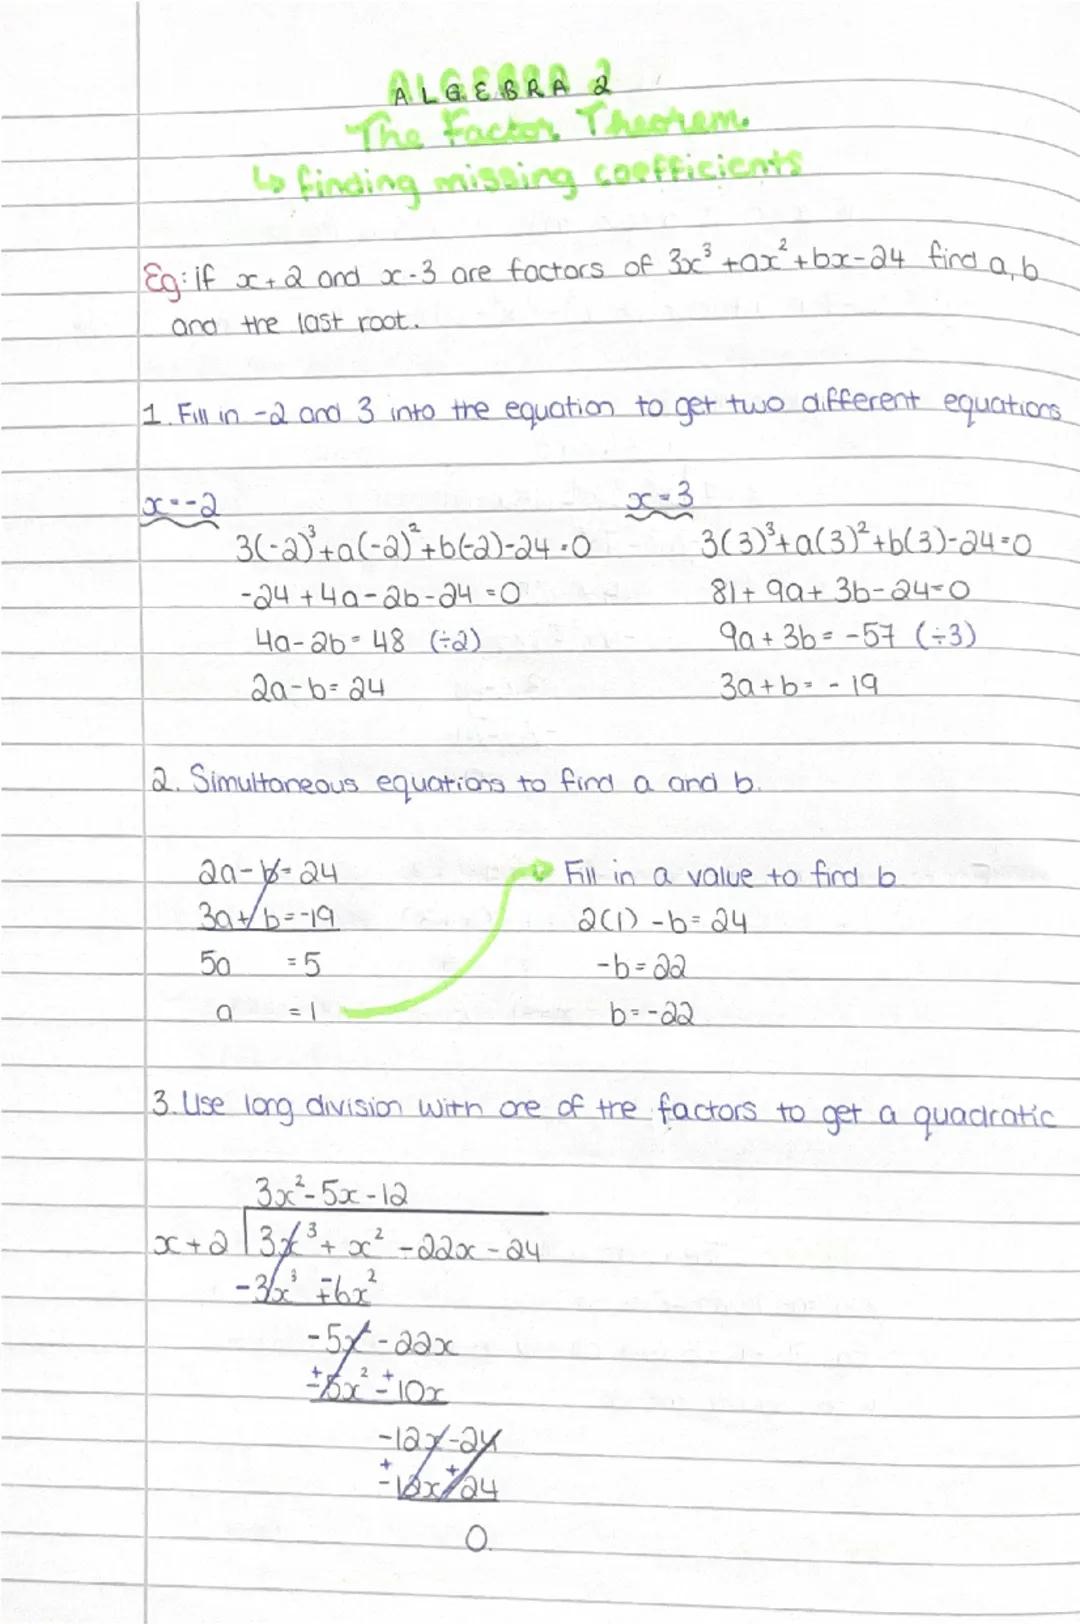 ALGEBRA 2
The Factor Theorem.
↳ finding missing coefficients
Eg: if x+2 and x-3 are factors of 3x³+ax²+bx-24 find a, b
and the last root.
1. Fill in -2 and 3 into the equation to get two different equations
x=-2
3(-2)³+a(-2)²+b(-2)-24=0
-24+4a-2b-24=0
4a-2b=48 (÷2)
2a-b=24
x=3
3(3)³+a(3)²+b(3)-24=0
81+9a+3b-24=0
9a+3b=-57 (÷3)
3a+b=-19
2. Simultaneous equations to find a and b.
2a-b=24
3a+b=-19
5a =5
a =1
Fill in a value to find b
2(1)-b=24
-b=22
b=-22
3. Use long division with one of the factors to get a quadratic
3x²-5x-12
x+2 | 3x³+x²-22x-24
-3x³ ∓6x²
-5x-22x
±5x² ±10x
-12x-24
±12x±24
0.